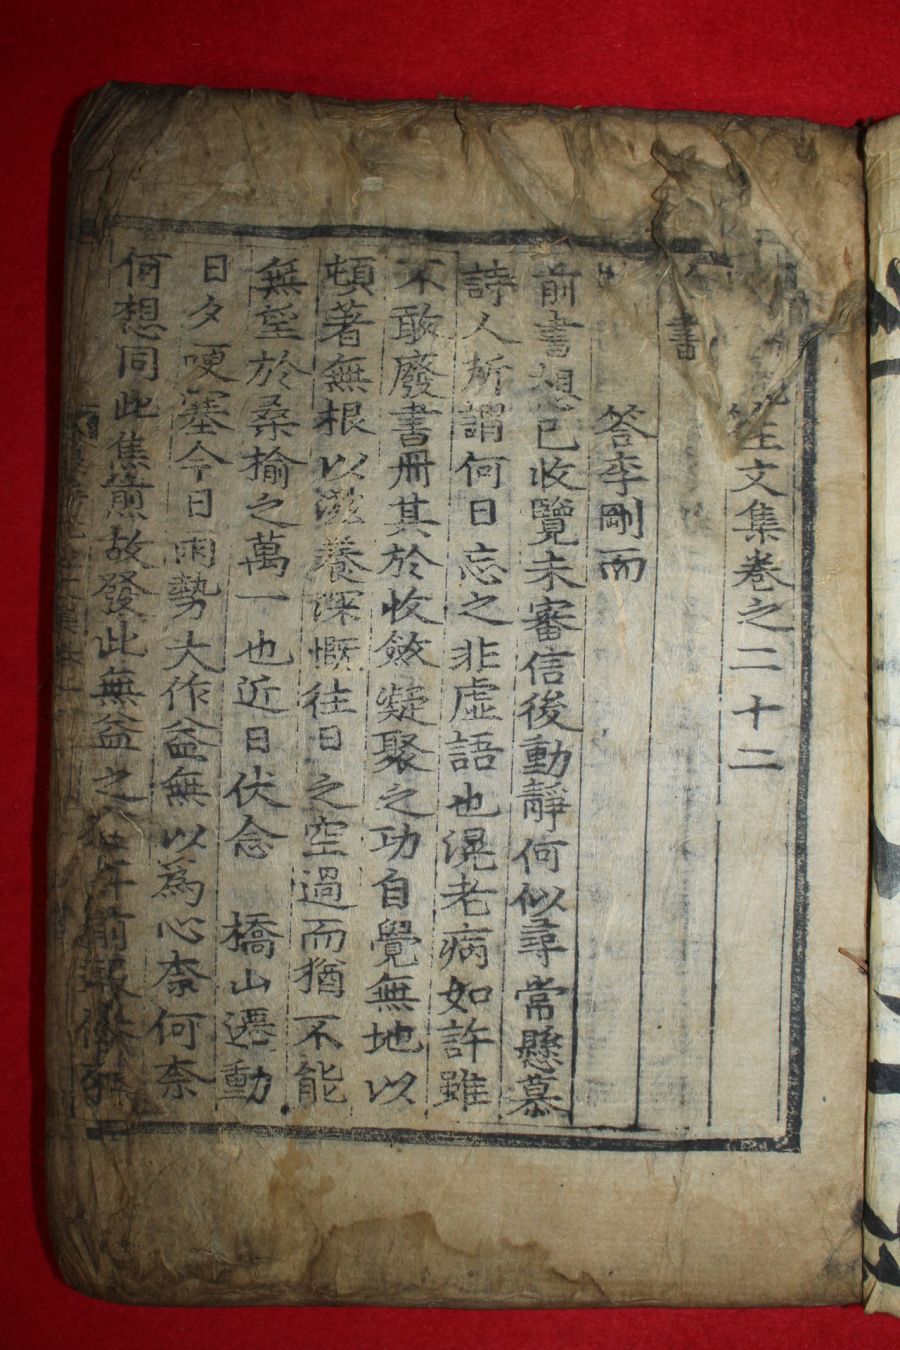 先生文集卷之二十二
書
答李剛而
前書想已收覽未審信後動靜何似尋常懸慕
詩人所謂何日忘之非虛語也滉老病如許雖
不敢廢書冊其於收斂凝聚之功自覺無地以
頓著無根以滋養深慨往日之空過而猶不能
無望於桑揄之萬一也近日伏念 橋山遷動
日夕哽塞今日雨勢大作益無以爲心柰何柰
何想同此焦煎故發此無益之
午前